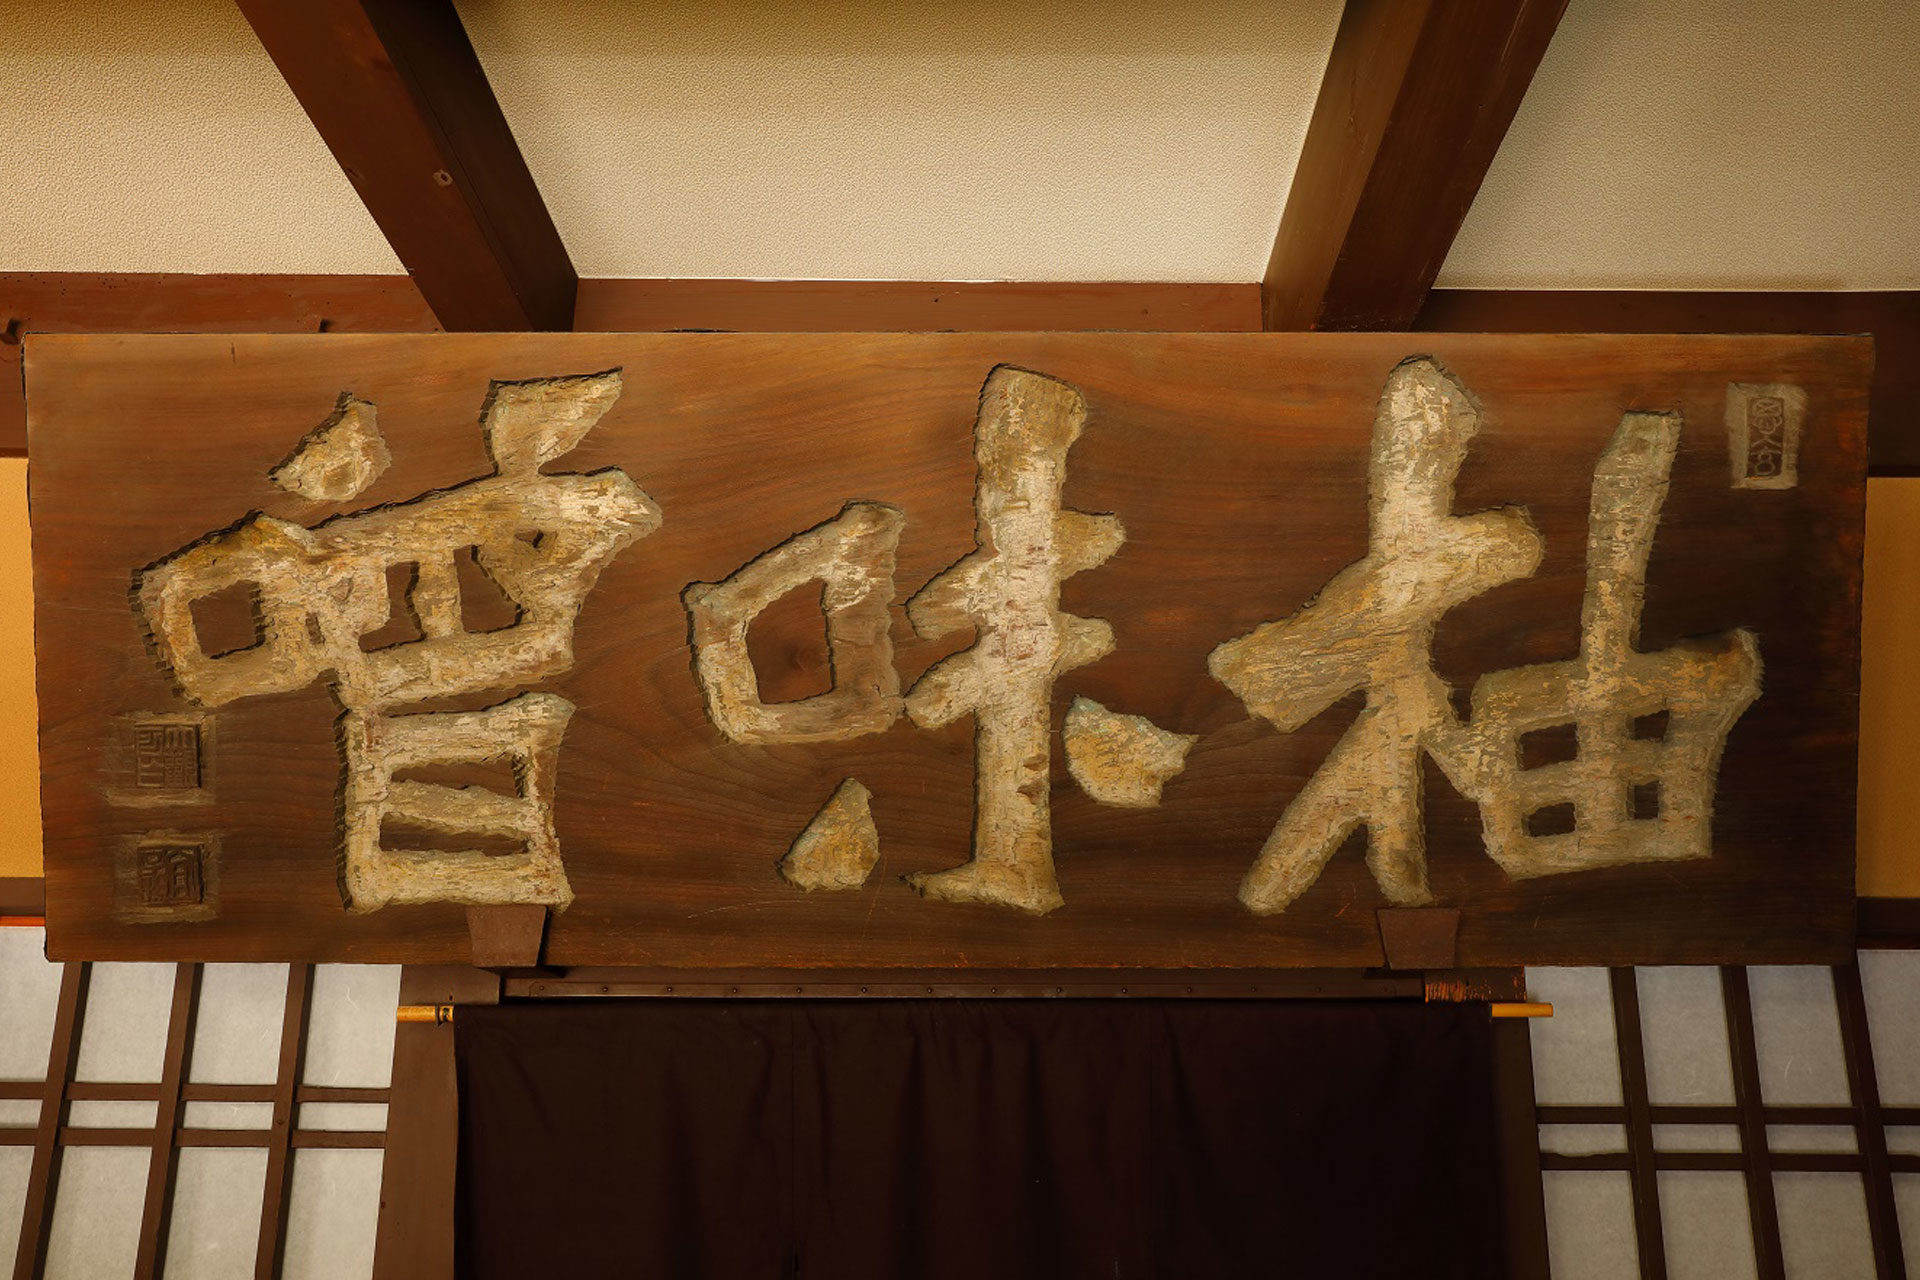 柚味噌